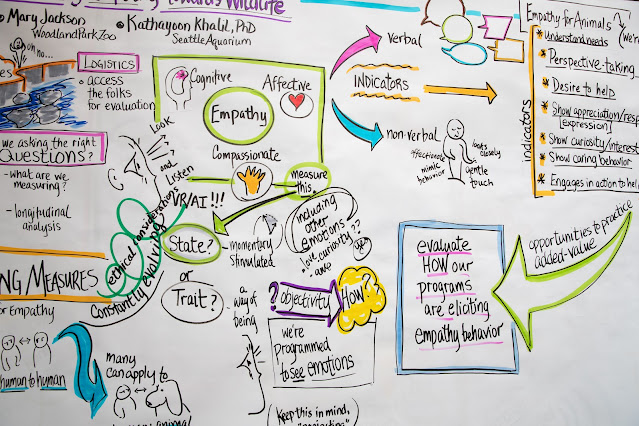 Towards Wildlife
Mary Jackson
Woodland Park Zoo
Kathayoon Khalil, PhD
Seattle Aquarium
oh no...
LOGISTICS
access
the folks
for evaluation
we asking the right
QUESTIONS?
-what are we
measuring?
-longitudinal
analysis
Look
and
Listen
Cognitive
Affective
Empathy
Compassionate
measure
this.
VR/AI!!!
ethical considerations
Constantly evolving
State?
-momentary
stimulated
or
Trait?
a way of
being
including
other
emotions
love curiosity??
awe
yes
verbal
INDICATORS
non-verbal
affectionate
mimic
behavior
looks
closely
gentle
touch
Empathy for Animals
(we're
indicators
Understand needs
Perspective-taking
Desire to help
Show appreciation/resp
[expression]
Show curiosity/interest
Show caring behavior
Engages in action to help
evaluate
HOW our
programs
are eliciting
empathy behavior
opportunities to practice
added-value
NG MEASURES
or Empathy
human to human
many
can apply to
animal
? objectivity
How?
we're
programmed
to see emotions
(Keep this in mind,
"projecting"